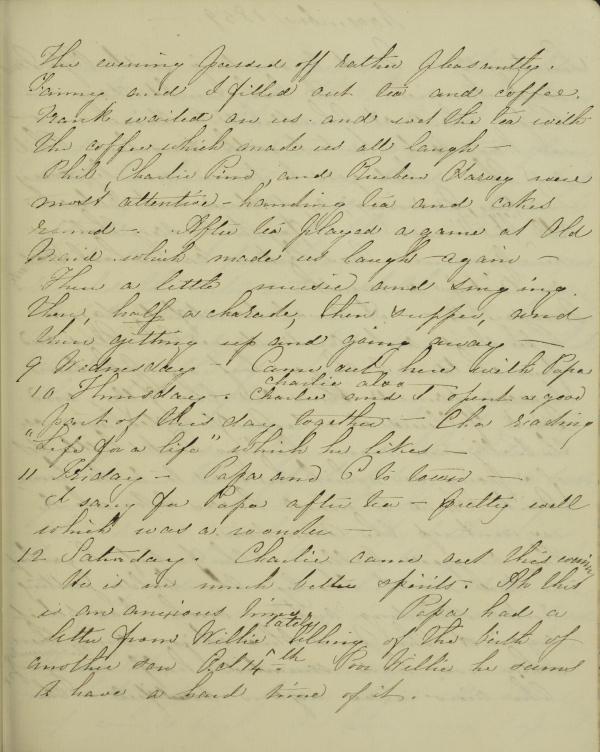 The evening passed off rather pleasantly.
Fanny and I filled out tea and coffee.
Frank waited on us. and wet the tea with
the coffee which made us all laugh -
Phil, Charlie and Reuben Harvey were
most attentive - handing tea and cakes
round -. After tea played a game at Old
Maid which made us laugh again -
Then a little music and singing.
Then, half a charade, then supper, and
then getting up and going away -
9 Wednesday - Came out here with Papa
Charlie also
10 Thursday. Charlie and I spent a good
part of this day together - Cha reading
"Life for a life" which he likes -
11 Friday - Papa and C to town -
I sang for Papa after tea - pretty well
which was a wonder -
12 Saturday. Charlie came out this evening
He is in much better spirits. Ah this
is an anxious time. Papa had a
lately
letter from Willie telling of the birth of
another son Oct 14th. Poor Willie he seems
to have a hard time of it.